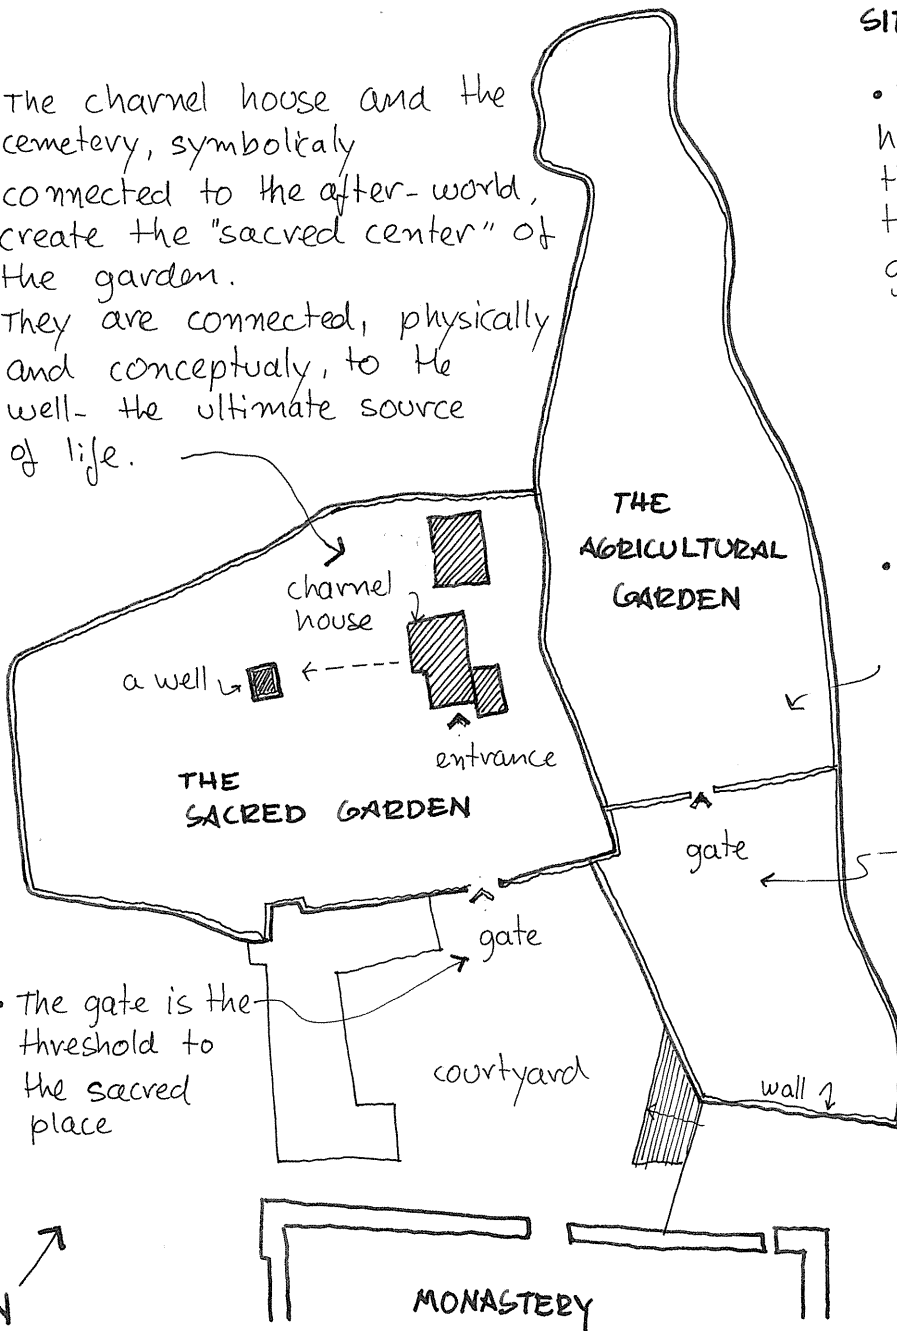 The charnel house and the
cemetery, symbolicaly
connected to the after-world,
create the "sacred center" of
the garden.
They are connected, physically
and conceptualy, to the
well- the ultimate source
of life.
SIT
THE
AGRICULTURAL
GARDEN
charnel
house
a well
entrance
THE
SACRED GARDEN
gate
gate
• The gate is the
threshold to
the sacred
place
courtyard
wall
N
MONASTERY